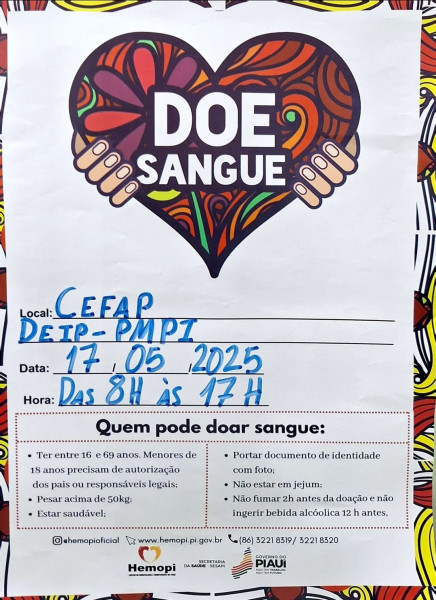 DOE
SANGUE
Local: CEFAP
DEIP-PMPI
Data: 17 / 05 / 2025
Hora: DAS 8H ÀS 17 H
Quem pode doar sangue:
• Ter entre 16 e 69 anos. Menores de
18 anos precisam de autorização
dos pais ou responsáveis legais;
• Pesar acima de 50kg;
• Estar saudável;
• Portar documento de identidade
com foto;
• Não estar em jejum;
• Não fumar 2h antes da doação e não
ingerir bebida alcóolica 12 h antes.
@hemopioficial www.hemopi.pi.gov.br (86) 3221 8319/ 3221 8320
Hemopi
SECRETARIA
DA SAÚDE - SESAPI
GOVERNO DO
PIAUÍ